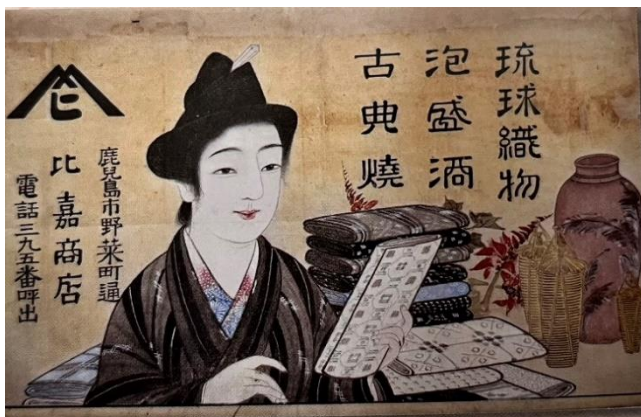 琉球織物
泡盛酒
古典燒
鹿兒島市野菜町通
比嘉商店
電話三九五番呼出
ヒ